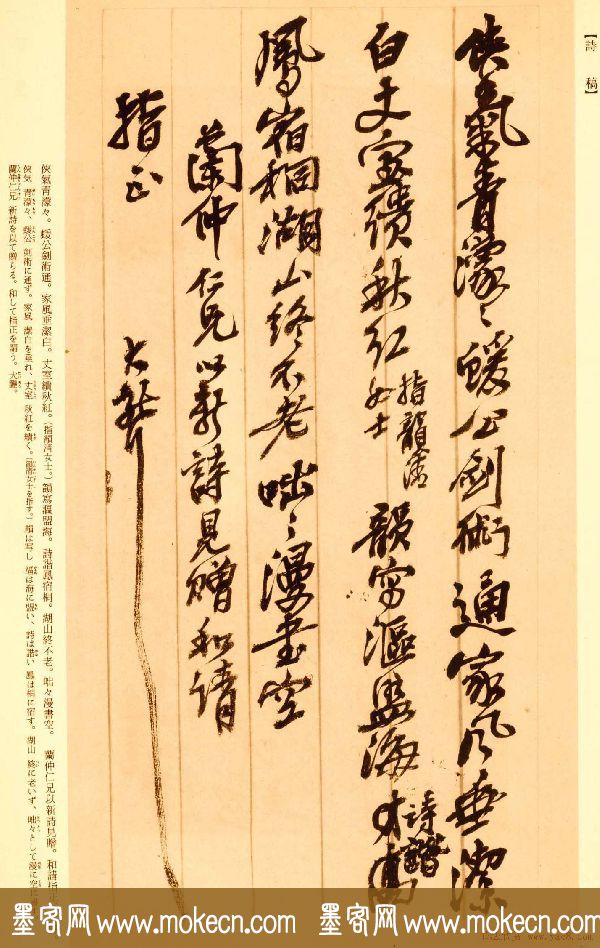 【詩稿】
俠氣青濛〻蝯公劍術通家風垂潔
白丈室績秋紅 指韻清女士 韻寫漚盟海 詩諧
鳳宿桐湖山終不老咄〻漫書空
蘭仲仁兄以新詩見贈和請
指正
大聾
俠氣青濛々。蝯公劍術通。家風垂潔白。丈室績秋紅。(指韻清女士。)韻寫漚盟海。詩諧鳳宿桐。湖山終不老。咄々漫書空。 蘭仲仁兄以新詩見贈。和請指
俠気 青濛々、蝯公 剣術に通ず。家風 潔白を垂れ、丈室 秋紅を績く。(韻清女士を指す。)韻は写し 漚は海に盟い、詩は諧い 鳳は桐に宿す。湖山 終に老いず、咄々として漫に空に
蘭仲仁兄 新詩を以て贈らる。和して指正を請う。大聾。
墨客网 www.mokecn.com 墨客网 www.mokecn.com